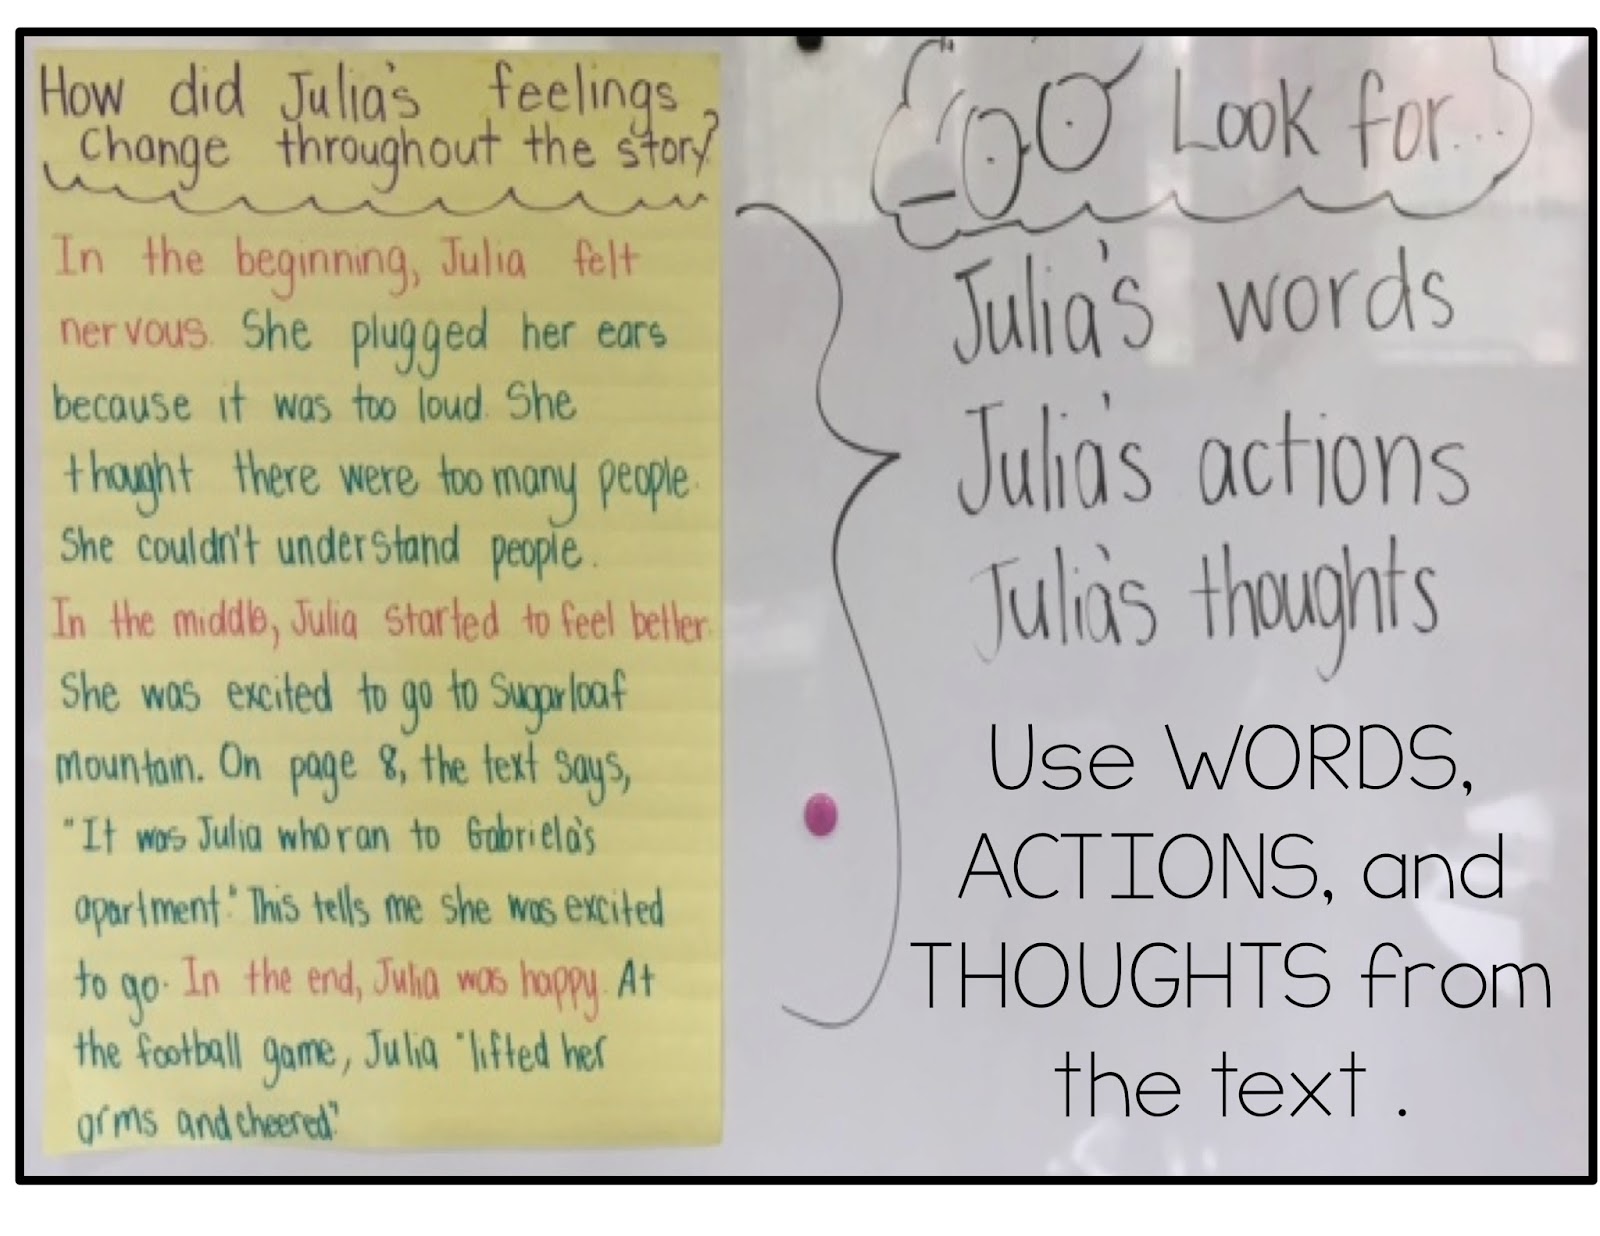 How did Julia's feelings
change throughout the story?
In the beginning, Julia felt
nervous. She plugged her ears
because it was too loud. She
thought there were too many people.
She couldn't understand people.
In the middle, Julia started to feel better.
She was excited to go to Sugarloaf
mountain. On page 8, the text says,
"It was Julia who ran to Gabriela's
apartment." This tells me she was excited
to go. In the end, Julia was happy. At
the football game, Julia "lifted her
arms and cheered."
Look for...
Julia's words
Julia's actions
Julia's thoughts
Use WORDS,
ACTIONS, and
THOUGHTS from
the text .